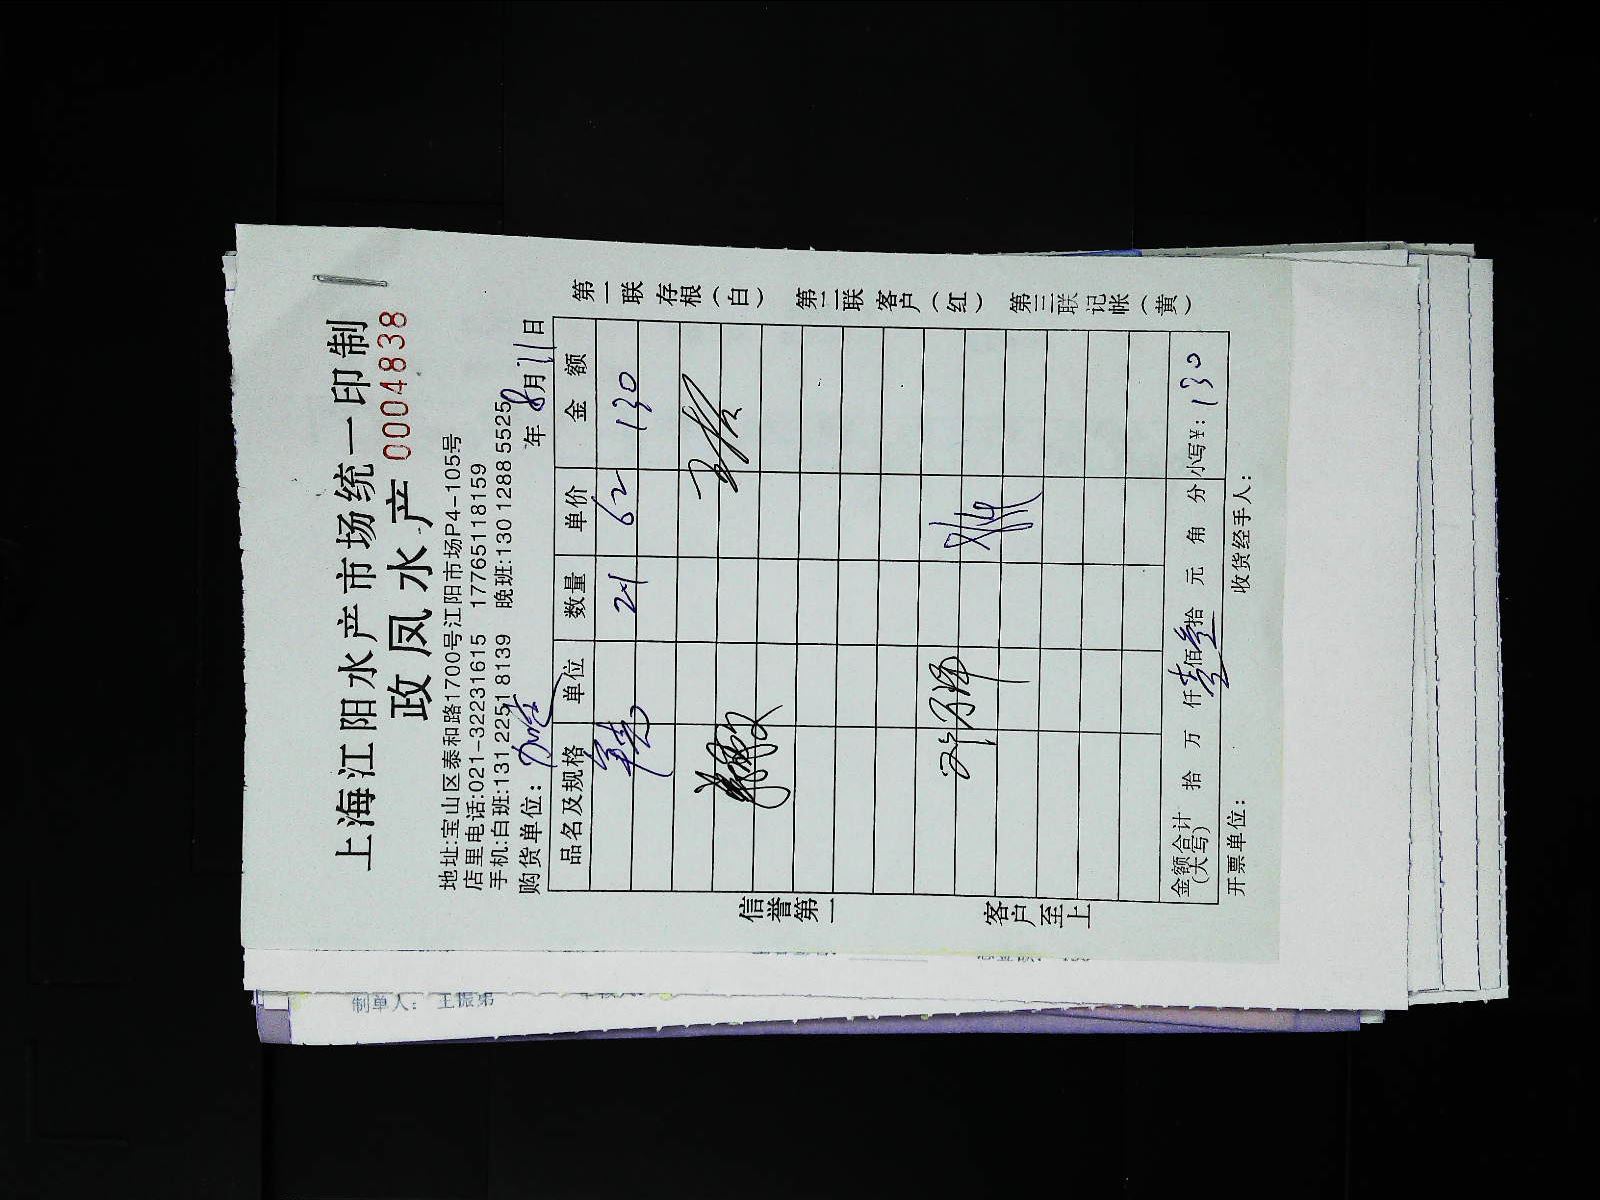 上海江阳水产市场统一印制
政凤水产 0004838
地址:宝山区泰和路1700号江阳市场P4-105号
店里电话:021-32231615 17765118159
手机:白班:131 2251 8139 晚班:130 1288 5525
购货单位: 年8月21日
品名及规格 单位 数量 单价 金额
21 62 130
金额合计(大写) 拾 万 仟壹佰叁拾 元 角 分 小写¥: 130
开票单位: 收货经手人:
第一联存根(白) 第二联客户(红) 第三联记帐(黄)
信誉第一 客户至上
制单人: 王振弟